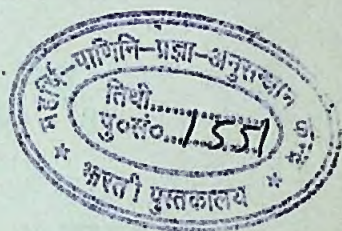 महर्षि-पाणिनि-प्रज्ञा-अनुसन्धान
तिथी..............
पु०सं०...1551
* भारती पुस्तकालय *